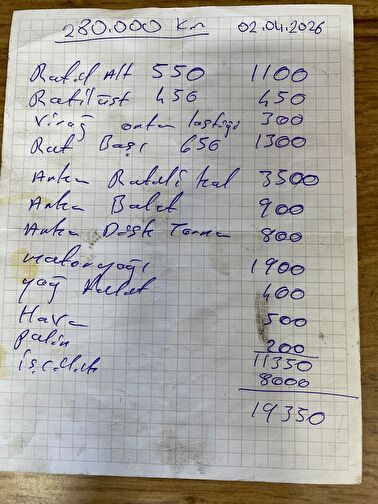 280.000 Km 02.04.2026
Rotil Alt 550 1100
Rotil üst 450 450
Viraj orta lastiği 300
Rot Başı 650 1300
Arka Rotilli kol 3500
Arka Balat 900
Arka Disk Torna 800
motor yağı 1900
yağ 400
Hava 500
Polin 200
11350
işcilik 8000
19350